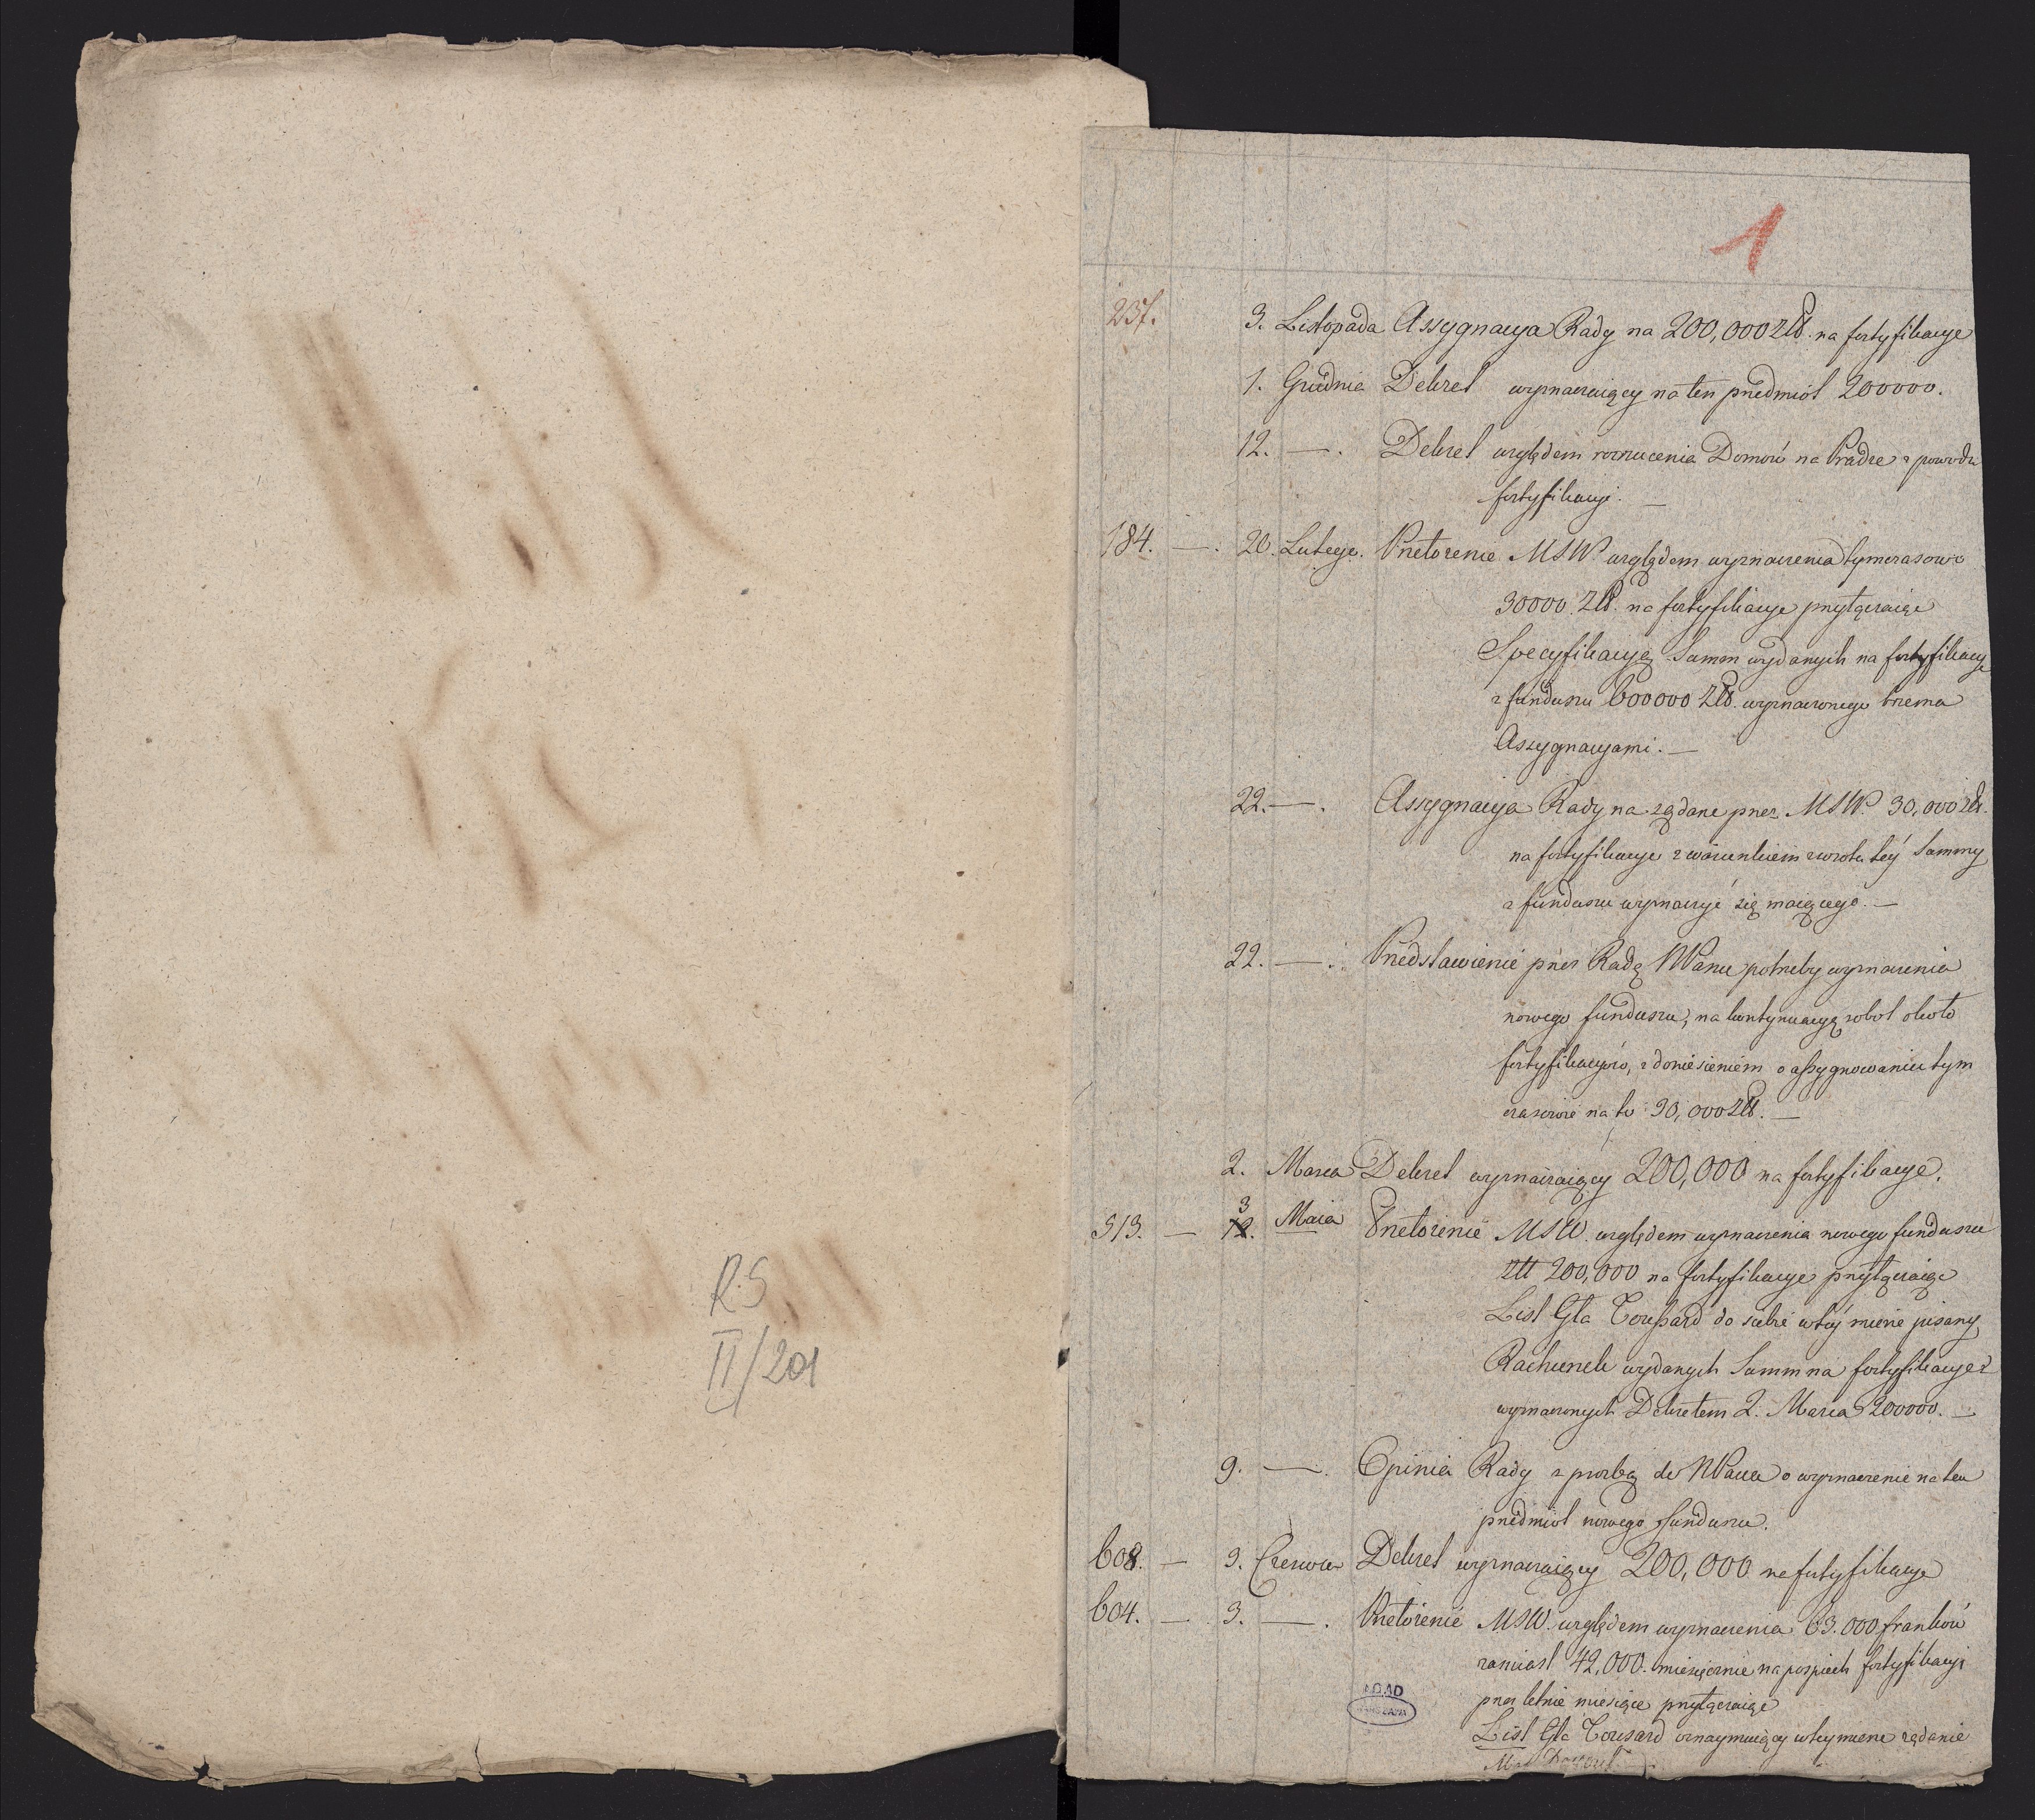 R.S
II/201
1
237. 3. Listopada Assygnacya Rady na 200,000 zł. na fortyfikacye
1. Grudnia Dekret wyznaczaiący na ten przedmiot 200000.
12. —. Dekret względem rozrucenia Domów na Pradze z powodu
fortyfikacyi. —
184. —. 20. Lutego. Przełożenie MSW względem wyznaczenia tymczasowo
30000. zł. na fortyfikacye przyłączaiąc
Specyfikacyą Summ wydanych na fortyfikacye
z funduszu 600000 zł. wyznaczonego trzema
Assygnacyami. —
22. —. Assygnacya Rady na żądane przez MSW. 30,000 zł.
na fortyfikacye z warunkiem zwrotu tey Summy
z funduszu wyznaczyć się maiącego. —
22. —. Przedstawienie przez Radę NPanu potrzeby wyznaczenia
nowego funduszu, na kontynuacyą robot około
fortyfikacyów, z doniesieniem o assygnowaniu tym
czasowie na to 30,000 zł. —
2. Marca Dekret wyznaczaiący 200,000 na fortyfikacye.
513. — 3 12. Maia Przełożenie MSW. względem wyznaczenia nowego funduszu
złł 200,000 na fortyfikacye przyłączaiąc
List Gła do siebie w tey mierze pisany
Rachunek wydanych Summ na fortyfikacye z
wyznaczonych Dekretem 2. Marca 200000. —
9. —. Opinia Rady z prozbą do NPana o wyznaczenie na ten
przedmiot nowego funduszu.
608. — 9. Czerwca Dekret wyznaczaiący 200,000 na fortyfikacye
604. — 3. —. Przełożenie MSW. względem wyznaczenia 63.000 franków
zamiast 42,000. miesięcznie na pospiech fortyfikacyi
przez letnie miesiące przyłączaiąc
List Gła w tey mierze żądanie
AGAD
WARSZAWA